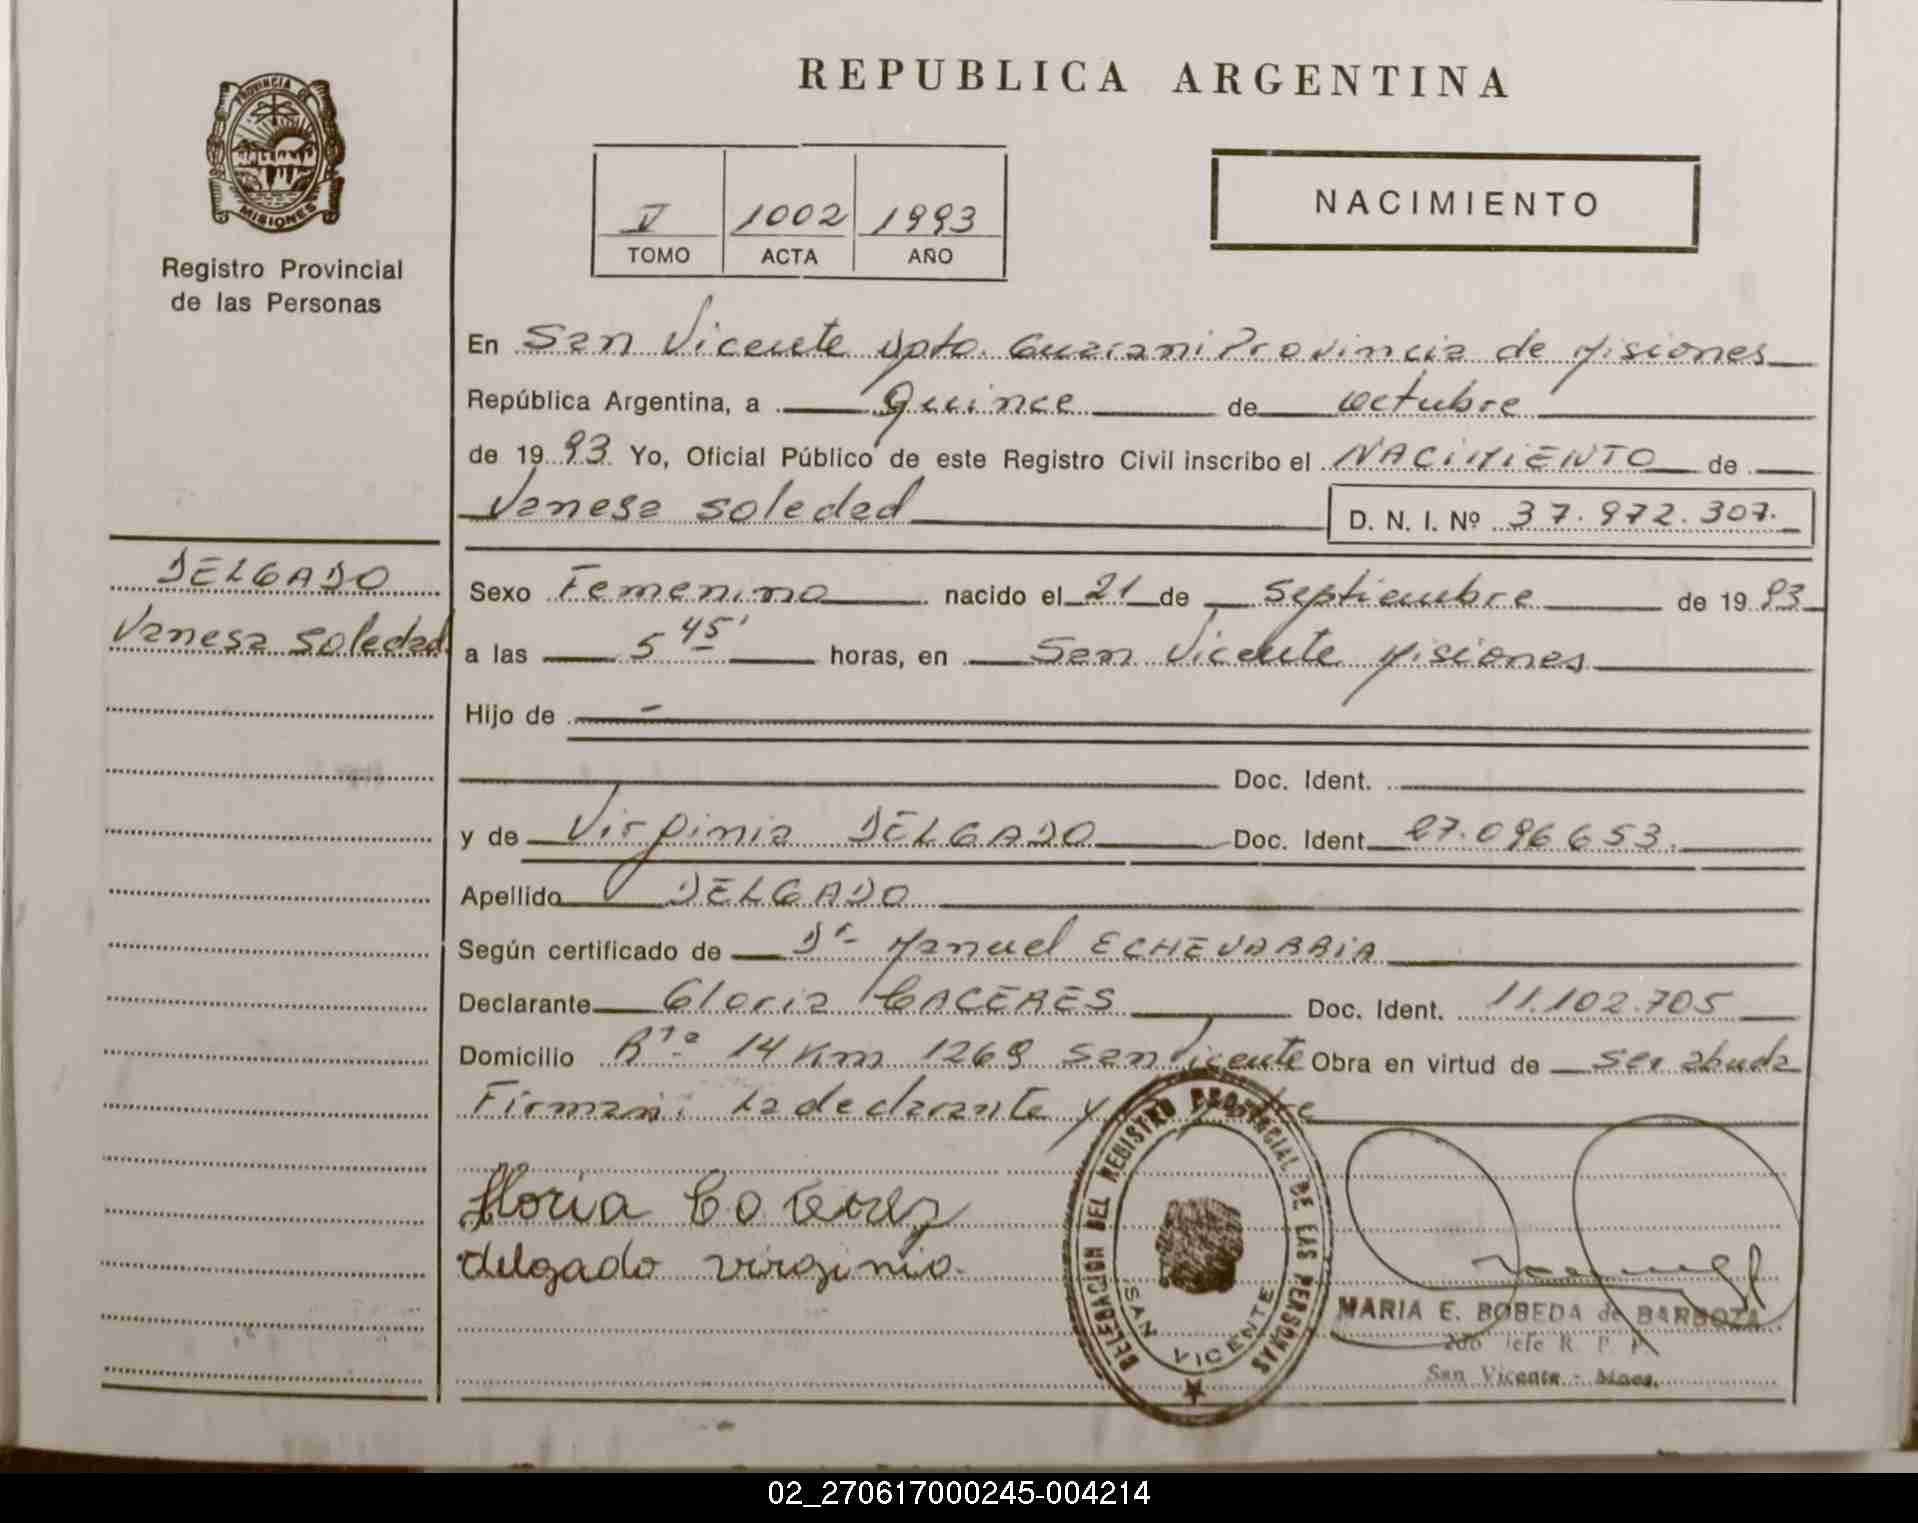 REPUBLICA ARGENTINA
PROVINCIA DE MISIONES
Registro Provincial
de las Personas
V 1002 1993
TOMO ACTA AÑO
NACIMIENTO
En San Vicente Dpto. Guarani Provincia de Misiones
República Argentina, a Quince de octubre
de 1993 Yo, Oficial Público de este Registro Civil inscribo el NACIMIENTO de
Vanesa Soledad D. N. I. Nº 37.972.307.
DELGADO
Vanesa Soledad
Sexo Femenino nacido el 21 de Septiembre de 1993
a las 5 45' horas, en San Vicente Misiones
Hijo de -
Doc. Ident.
y de Virginia DELGADO Doc. Ident. 27.096653.
Apellido DELGADO
Según certificado de Dr Manuel ECHEVARRIA
Declarante Gloria CACERES Doc. Ident. 11.102.705
Domicilio Rta 14 Km 1269 San Vicente Obra en virtud de ser abuela
Firman: La declarante y
Gloria
delgado virginia
DELEGACION DEL REGISTRO PROVINCIAL DE LAS PERSONAS
SAN VICENTE
MARIA E. BOBEDA de BARBOZA
2do Jefe R. P. P.
San Vicente - Mnes.
02_270617000245-004214